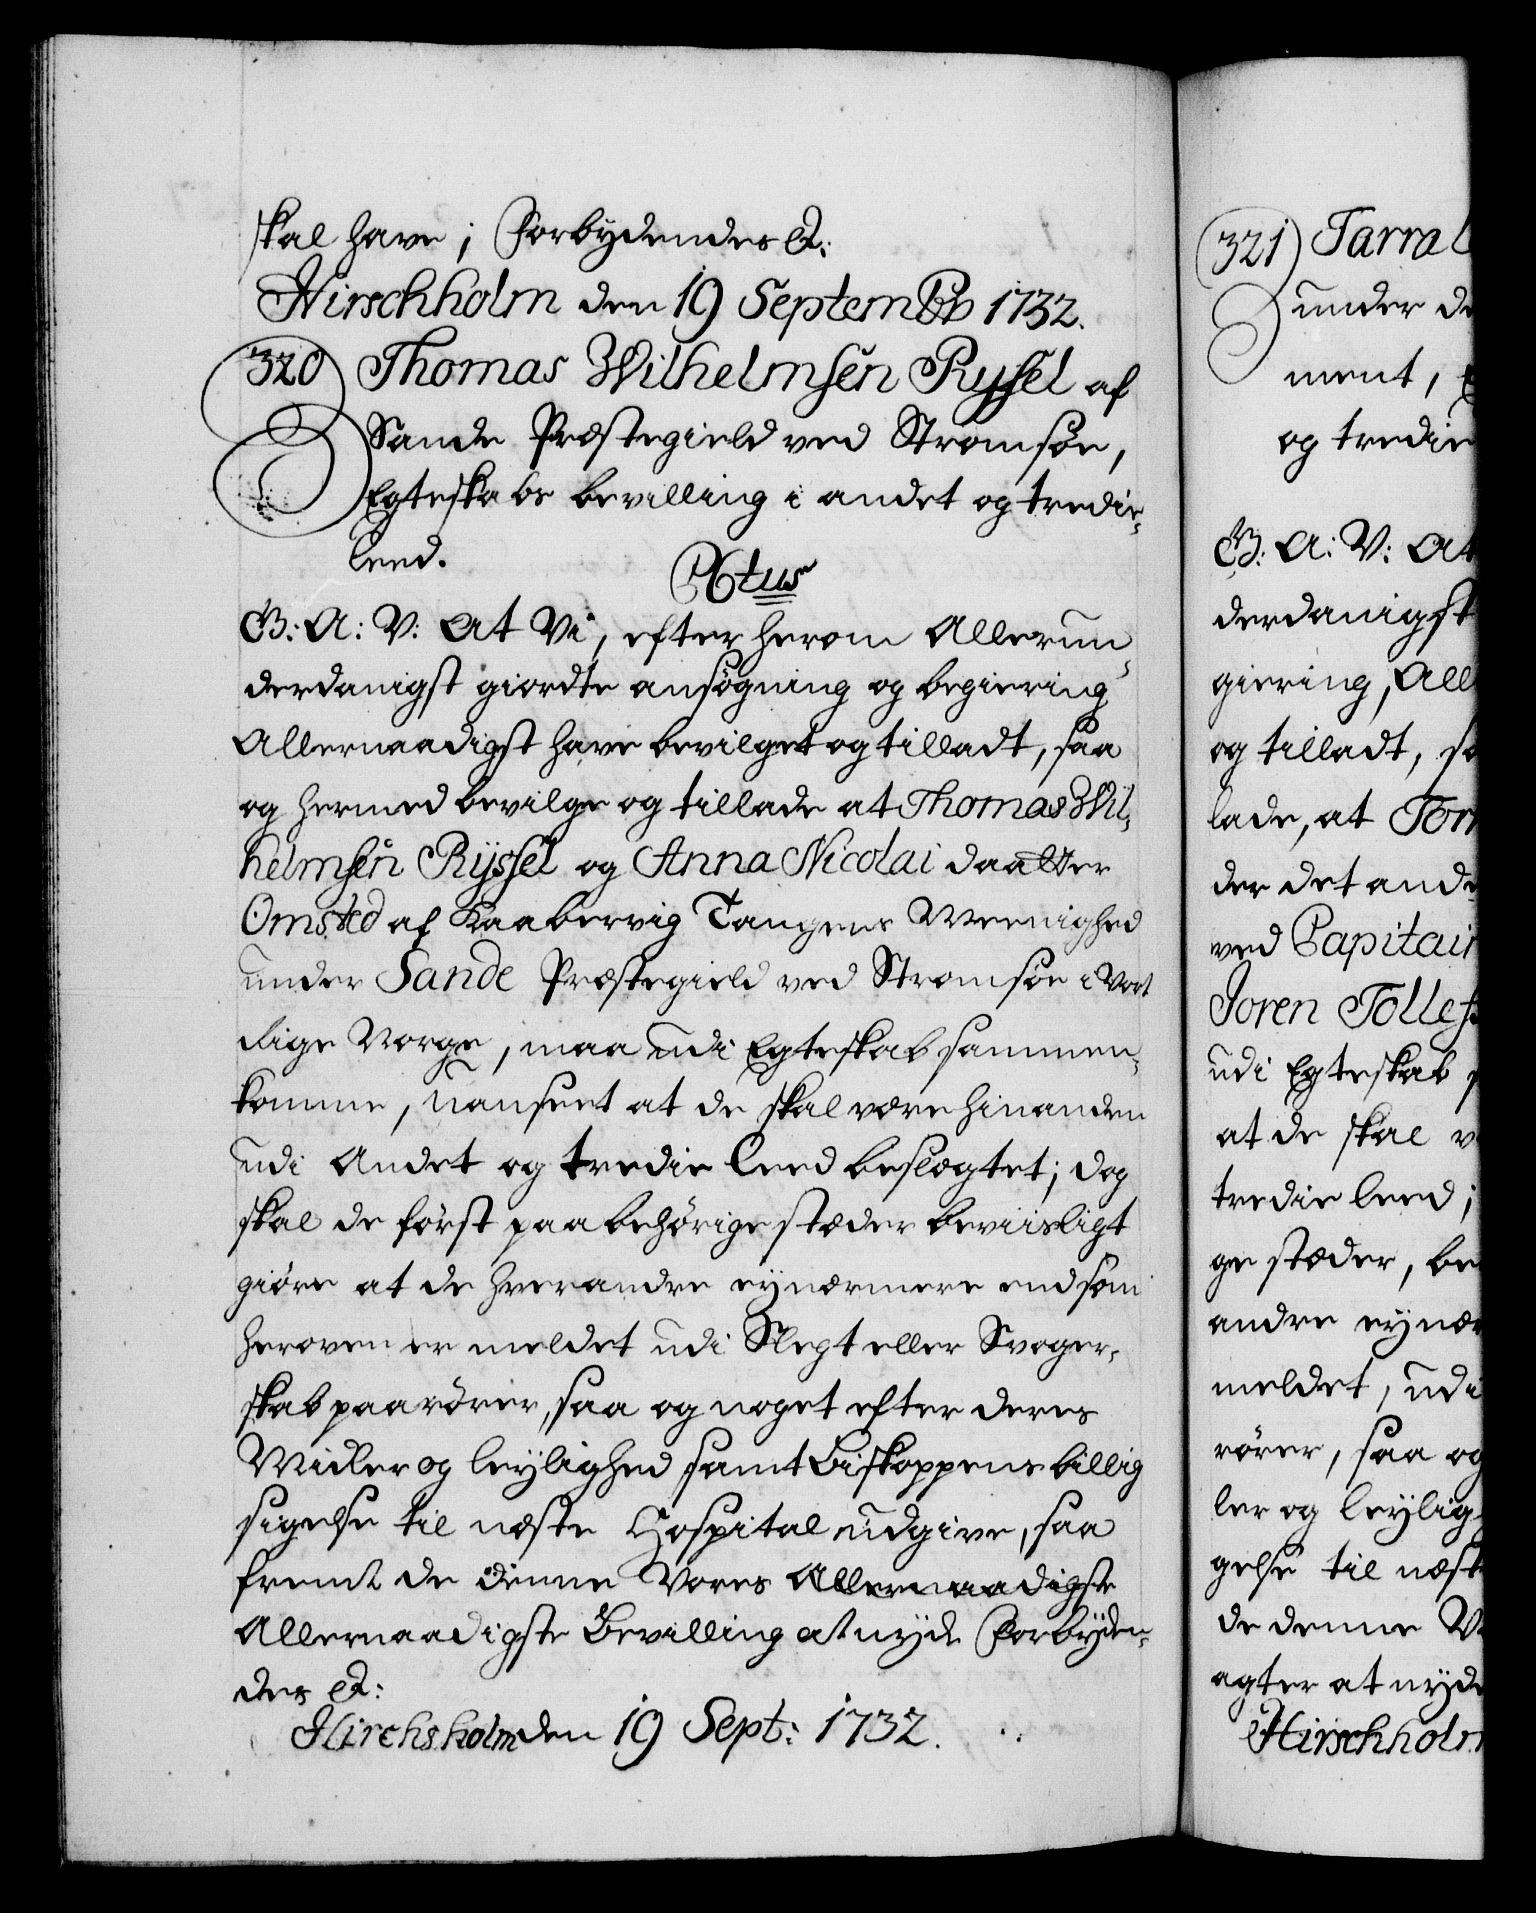 skal have; Forbydendes &:
Hirschholm den 19 Septembr 1732.
320 Thomas Wilhelmsen Ryssel af
Sande Præstegield ved Stromsøe,
Egteskabs bevilling i andet og tredie-
leed.
G: A: V: At Vi, efter herom Allerun-
derdanigst giordte ansøgning og begiering
Allernaadigst have bevilget og tilladt, saa
og hermed bevilge og tillade at Thomas Wil-
helmsen Ryssel og Anna Nicolai daatter
Omsted af Kaabervig Tangens Meenighed
under Sande Præstegield ved Stromsøe i Vort
Rige Norge, maa udi Egteskab sammen-
komme, uanseet at de skal være hinanden
udi Andet og tredie Leed beslægtet; dog
skal de først paa behørige stæder beviisligt
giøre at de hverandre ey nærmere end som
heroven er meldet udi Slegt eller Svoger-
skab paarører, saa og noget efter deres
Midler og leylighed samt Biskoppens billig
sigelse til næste Hospital udgive, saa
fremt de denne Vores Allernaadigste
Allernaadigste Bevilling at nyde Forbyden-
des &:
Hirchsholm den 19 Sept: 1732.
321 Tarral
under de
ment,
og tredie
G: A: V: At
derdanigst
giering, All
og tilladt, sa
lade, at Torr
der det ande
ved Capitain
Joren Tollefs
udi Egteskab
at de skal v
tredie leed;
ge stæder, be
andre ey nær
meldet, udi
rører, saa og
ler og leylig-
gelse til næst
de denne V
agter at nyde
Hirschholm